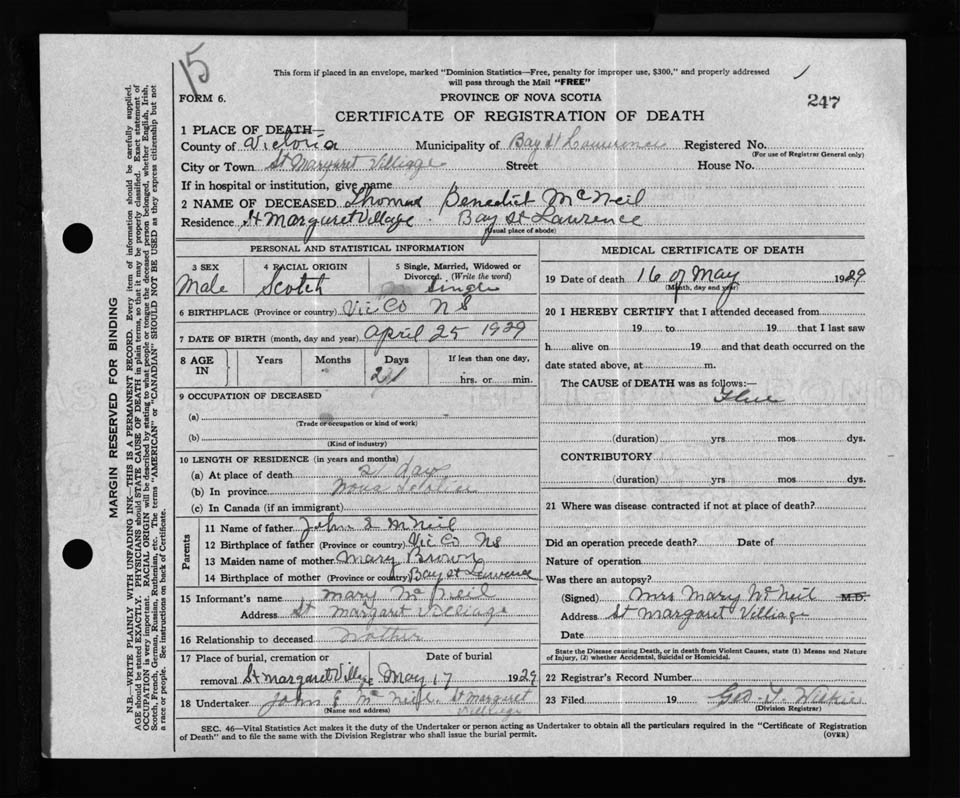 15
This form if placed in an envelope, marked "Dominion Statistics—Free, penalty for improper use, $300," and properly addressed
will pass through the Mail "FREE"
FORM 6.
PROVINCE OF NOVA SCOTIA
247
CERTIFICATE OF REGISTRATION OF DEATH
1 PLACE OF DEATH—
County of Victoria Municipality of Bay St Lawrence Registered No.
(For use of Registrar General only)
City or Town St Margaret Villiage Street House No.
If in hospital or institution, give name
2 NAME OF DECEASED Thomas Benedict McNeil
Residence St Margaret Village Bay St Lawrence
(Usual place of abode)
PERSONAL AND STATISTICAL INFORMATION
3 SEX 4 RACIAL ORIGIN 5 Single, Married, Widowed or
Divorced. (Write the word)
Male Scotch Single
6 BIRTHPLACE (Province or country) Vic Co N S
7 DATE OF BIRTH (month, day and year) April 25 1929
8 AGE IN Years Months Days If less than one day,
21 hrs. or min.
9 OCCUPATION OF DECEASED
(a)
(Trade or occupation or kind of work)
(b)
(Kind of industry)
10 LENGTH OF RESIDENCE (in years and months)
(a) At place of death 21 days
(b) In province Nova Scotia
(c) In Canada (if an immigrant)
Parents
11 Name of father John S McNeil
12 Birthplace of father (Province or country) Vic Co NS
13 Maiden name of mother Mary Brown
14 Birthplace of mother (Province or country) Bay St Lawrence
15 Informant's name Mary McNeil
Address St Margaret Villiage
16 Relationship to deceased Mother
17 Place of burial, cremation or Date of burial
removal St Margaret Village May 17 1929
18 Undertaker John E McNeil St Margaret
Villiage
(Name and address)
MEDICAL CERTIFICATE OF DEATH
19 Date of death 16 of May 1929
(Month, day and year)
20 I HEREBY CERTIFY that I attended deceased from
19 to 19 that I last saw
h alive on 19 and that death occurred on the
date stated above, at m.
The CAUSE of DEATH was as follows:—
Flue
(duration) yrs mos dys.
CONTRIBUTORY
(duration) yrs mos dys.
21 Where was disease contracted if not at place of death?
Did an operation precede death? Date of
Nature of operation
Was there an autopsy?
(Signed) Mrs Mary McNeil M.D.
Address St Margaret Villiage
Date
State the Disease causing Death, or in death from Violent Causes, state (1) Means and Nature
of Injury, (2) whether Accidental, Suicidal or Homicidal.
22 Registrar's Record Number
23 Filed 19 Geo. T. Wilkie
(Division Registrar)
SEC. 46—Vital Statistics Act makes it the duty of the Undertaker or person acting as Undertaker to obtain all the particulars required in the "Certificate of Registration
of Death" and to file the same with the Division Registrar who shall issue the burial permit.
(OVER)
MARGIN RESERVED FOR BINDING
N.B.—WRITE PLAINLY WITH UNFADING INK—THIS IS A PERMANENT RECORD. Every item of information should be carefully supplied.
AGE should be stated EXACTLY. PHYSICIANS should STATE CAUSE OF DEATH in plain terms, so that it may be properly classified. Exact statement of
OCCUPATION is very important. RACIAL ORIGIN will be described by stating to what people or tongue the deceased person belonged, whether English, Irish,
Scotch, French, German, Russian, Ruthenian, etc. The terms "AMERICAN" or "CANADIAN" SHOULD NOT BE USED as they express citizenship but not
a race or people. See instructions on back of Certificate.